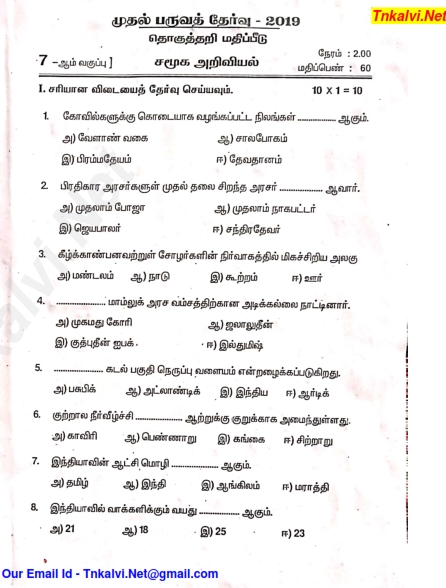 Tnkalvi.Net
முதல் பருவத் தேர்வு - 2019
தொகுத்தறி மதிப்பீடு
நேரம் : 2.00
7 -ஆம் வகுப்பு ] சமூக அறிவியல் மதிப்பெண் : 60
I. சரியான விடையைத் தேர்வு செய்யவும். 10 X 1 = 10
1. கோவில்களுக்கு கொடையாக வழங்கப்பட்ட நிலங்கள் .................. ஆகும்.
அ) வேளாண் வகை ஆ) சாலபோகம்
இ) பிரம்மதேயம் ஈ) தேவதானம்
2. பிரதிகார அரசர்களுள் முதல் தலை சிறந்த அரசர் .................... ஆவார்.
அ) முதலாம் போஜா ஆ) முதலாம் நாகபட்டர்
இ) ஜெயபாலர் ஈ) சந்திரதேவர்
3. கீழ்க்காண்பனவற்றுள் சோழர்களின் நிர்வாகத்தில் மிகச்சிறிய அலகு
அ) மண்டலம் ஆ) நாடு இ) கூற்றம் ஈ) ஊர்
4. ....................... மாம்லுக் அரச வம்சத்திற்கான அடிக்கல்லை நாட்டினார்.
அ) முகமது கோரி ஆ) ஜலாலுதீன்
இ) குத்புதீன் ஐபக். ஈ) இல்துமிஷ்
5. ....................... கடல் பகுதி நெருப்பு வளையம் என்றழைக்கப்படுகிறது.
அ) பசுபிக் ஆ) அட்லாண்டிக் இ) இந்திய ஈ) ஆர்டிக்
6. குற்றால நீர்வீழ்ச்சி ...................... ஆற்றுக்கு குறுக்காக அமைந்துள்ளது.
அ) காவிரி ஆ) பெண்ணாறு இ) கங்கை ஈ) சிற்றாறு
7. இந்தியாவின் ஆட்சி மொழி ...................... ஆகும்.
அ) தமிழ் ஆ) இந்தி இ) ஆங்கிலம் ஈ) மராத்தி
8. இந்தியாவில் வாக்களிக்கும் வயது .................. ஆகும்.
அ) 21 ஆ) 18 இ) 25 ஈ) 23
Our Email Id - Tnkalvi.Net@gmail.com